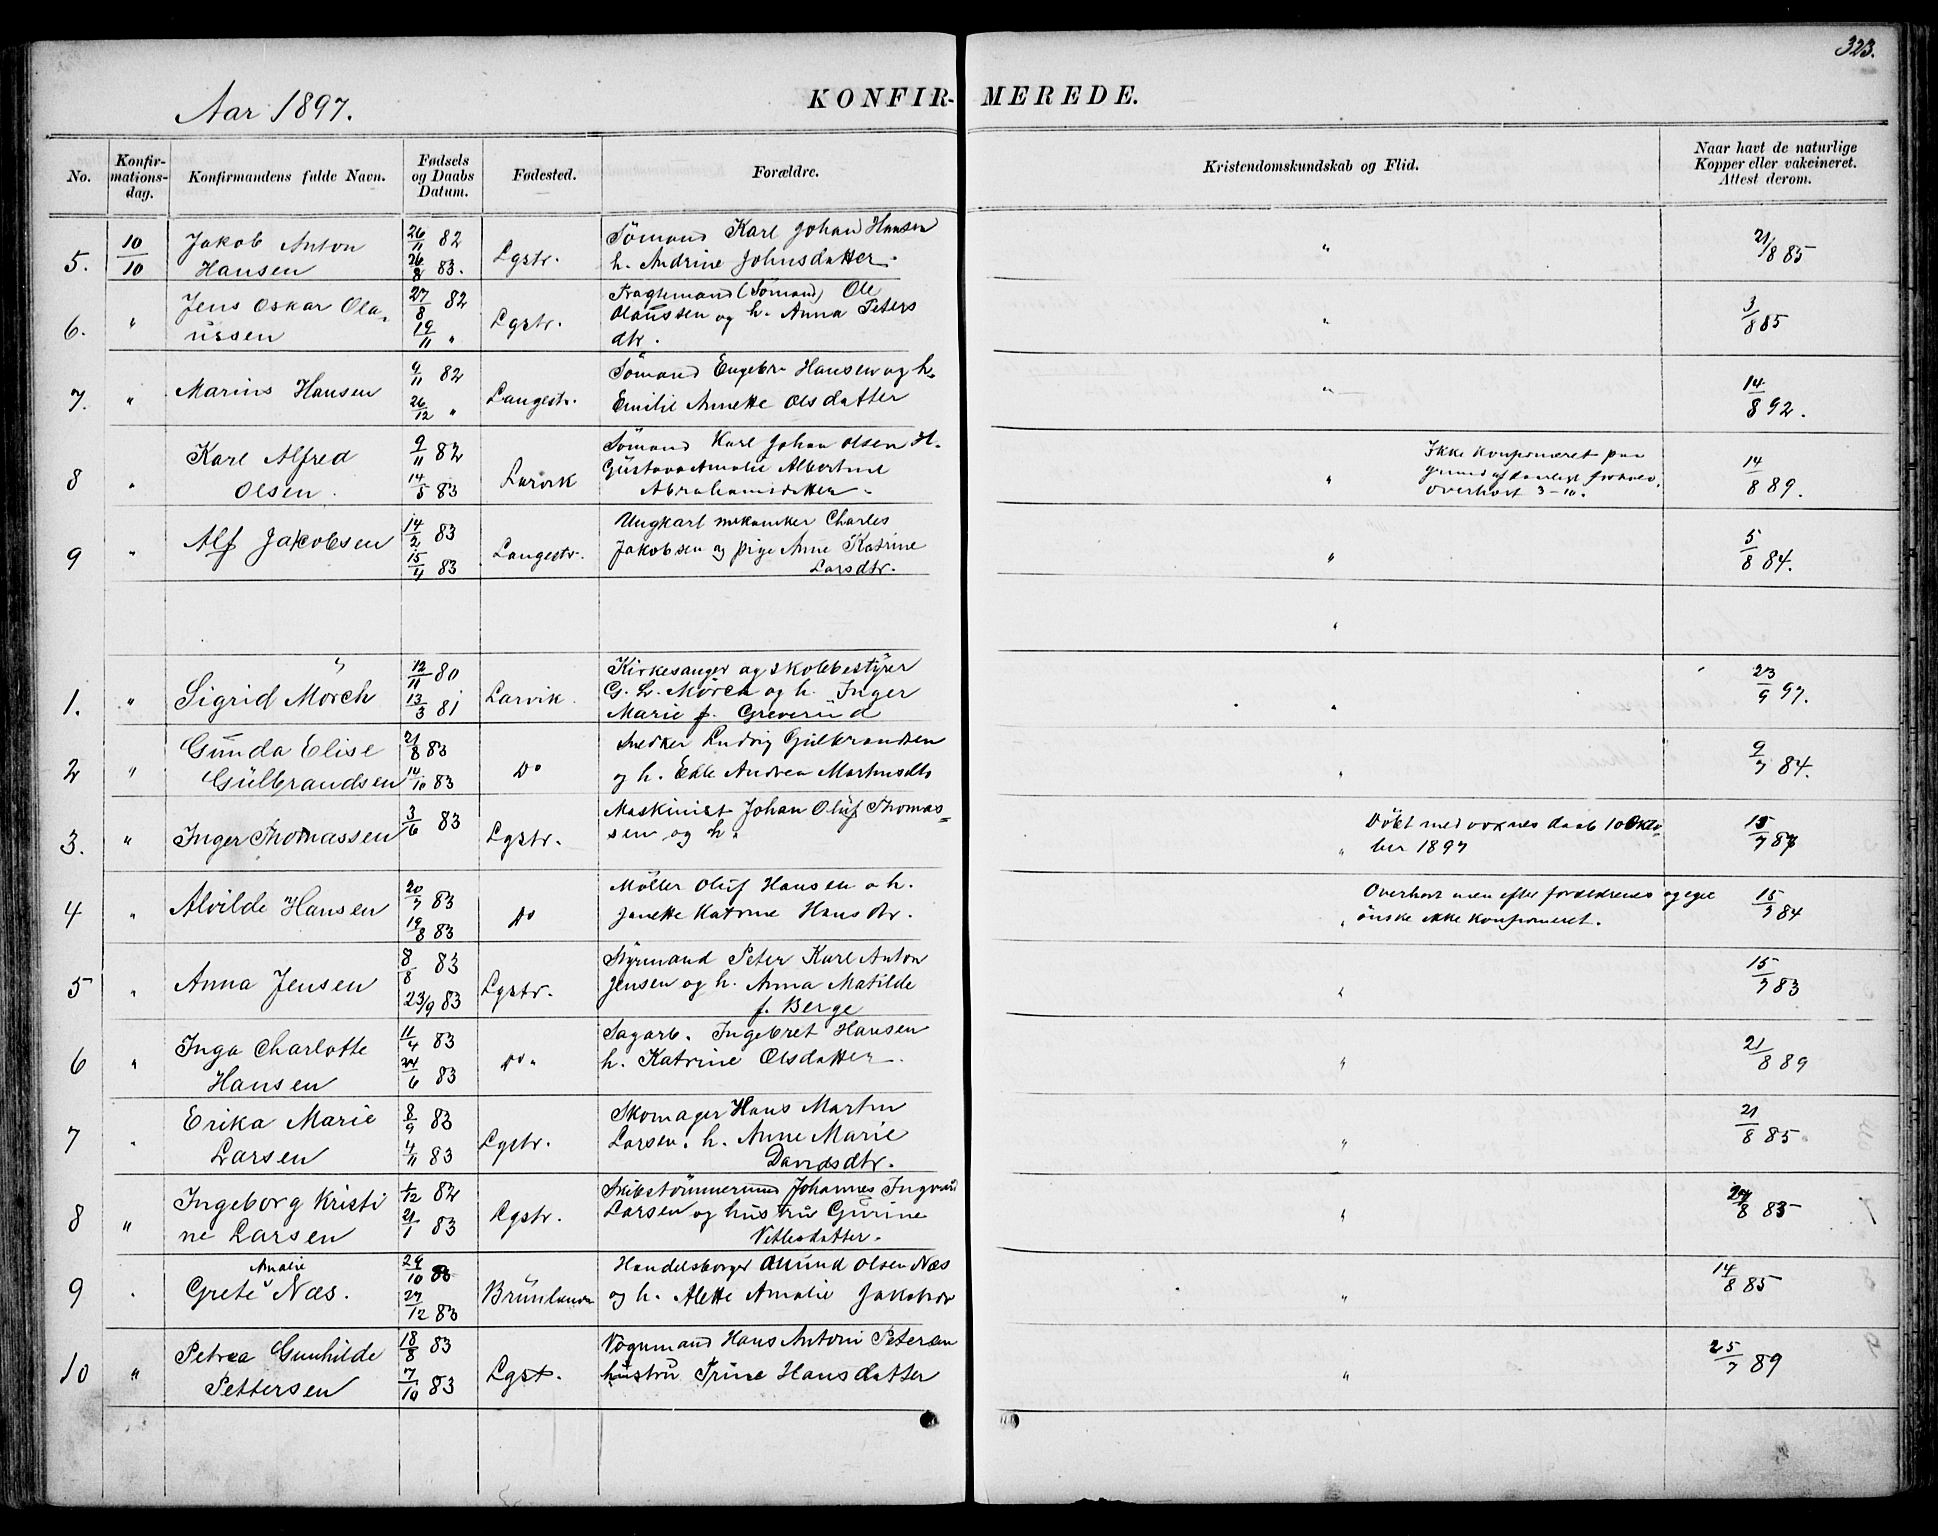 323.
Aar 1897.
KONFIR- MEREDE.
No.
Konfir-
mations-
dag.
Konfirmandens fulde Navn.
Fødsels
og Daabs
Datum.
Fødested.
Forældre.
Kristendomskundskab og Flid.
Naar havt de naturlige
Kopper eller vakcineret.
Attest derom.
5. 10/10 Jakob Anton
Hansen
26/11 82
26/8 83.
Lgstr.
Sömand Karl Johan Hansen
h. Andrine Johnsdatter.
" 21/8 85
6. " Jens Oskar Ola-
ussen
27/8 82
19/11 "
Lgstr.
Fragtemand (Sömand) Ole
Olaussen og h. Anna Peters
dtr.
" 3/8 85
7. " Marius Hansen
9/11 82
26/12 "
Langestr.
Sömand Engebr. Hansen og h.
Emilie Annette Olsdatter
" 14/8 92.
8 " Karl Alfred
Olsen.
9/11 82
14/5 83
Larvik
Sömand Karl Johan Olsen H.
Gustava Amalie Albertine
Abrahamsdatter.
" Ikke konfirmeret paa
grund af daarligt
overhört 3-10.
14/8 89.
9 " Alf Jakobsen
14/2 83
15/4 83
Langestr.
Ungkarl mekaniker Charles
Jakobsen og pige Anne Katrine
Larsdtr.
" 5/8 84.
"
1. " Sigrid Mörch
12/11 80
13/3 81
Larvik.
Kirkesanger og skolebestyrer
G. L. Mörch og h. Inger
Marie f. Greverud
" 23/9 97.
2 " Gunda Elise
Gulbrandsen
21/8 83
14/10 83
Do
Snedker Ludvig Gulbrandsen
og h. Edle Andrea Martinsdtr
" 9/7 84.
3. " Inger Thomassen
3/6 83
Lgstr.
Maskinist Johan Oluf Thomas=
sen og h.
" Döbt med voxnes daab 10 Okto-
ber 1897
15/7 87
4 " Alvilde Hansen
20/7 83
19/8 83
Do
Möller Oluf Hansen o h.
Janette Katrine Hansdtr.
" Overhört men efter forældrenes og eget
önske ikke konfirmeret.
15/7 84
5 " Anna Jensen
8/8 83
23/9 83
Lgstr.
Styrmand Peter Karl Anton
Jensen og h. Anna Matilde
f. Berge
" 15/7 83
6 " Inga Charlotte
Hansen
11/4 83
24/6 83
Do "
Sagarb. Ingebret Hansen
h. Katrine Olsdatter.
" 21/8 89
7 " Erika Marie
Larsen
8/9 83
4/11 83
Lgstr.
Skomager Hans Martin
Larsen. h. Anne Marie
Davidsdtr.
" 21/8 85.
8 " Ingeborg Kristi
ne Larsen
1/12 82
21/1 83
Lgstr.
Skibstömmermand Johannes Ingvald
Larsen og hustru Gurine
Vetlesdatter.
" 27/8 85
9 " Amalie
Grete Næs.
29/10 83
27/12 83
Brunlanæs
Handelsborger Amund Olsen Næs
og h. Alette Amalie Jakobsdr
" 14/8 85
10 " Petrea Gunhilde
Pettersen
18/8 83
7/10 83
Lgst.
Vognmand Hans Antoni Petersen
hustru Trine Hansdatter
" 25/7 89